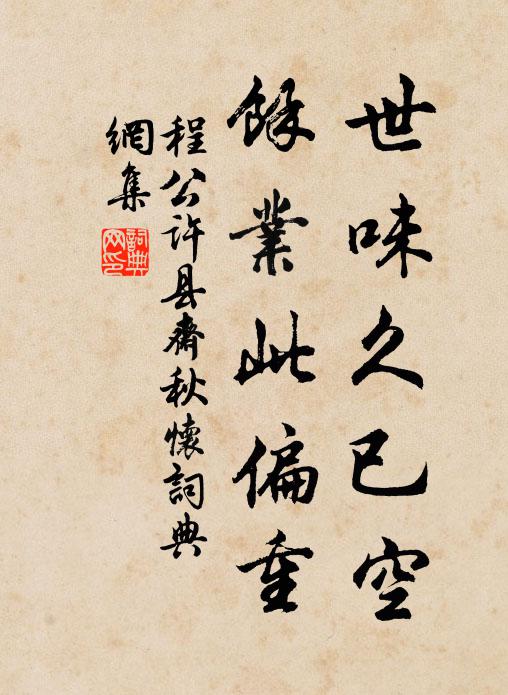 世味久已空
餘業此偏重
程公许县齋秋懷詞典
網集
詞典
网印